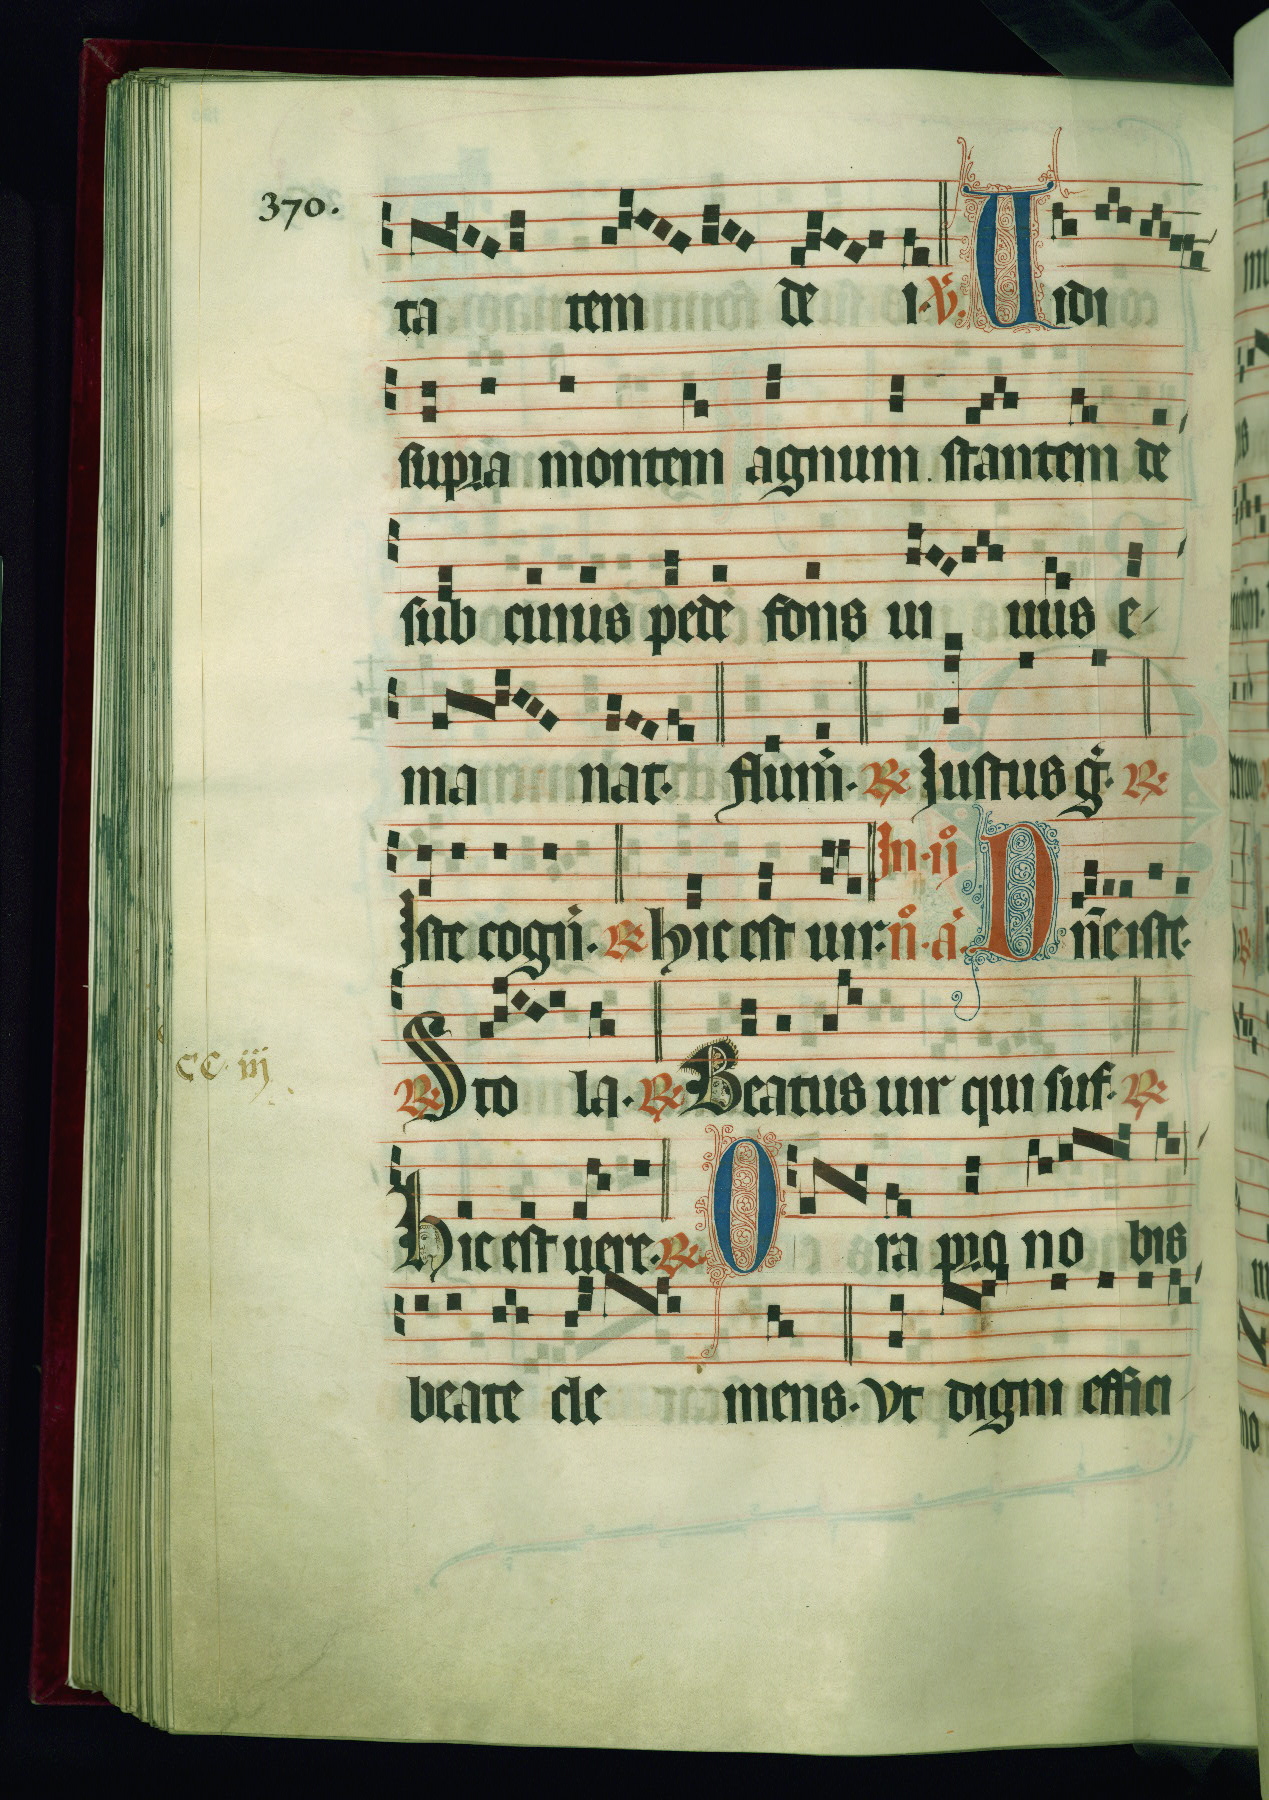 370.
ta tem de i. V. Uidi
supra montem agnum stantem de
sub cuius pede fons ui uus e
ma nat. flum̄. R. Iustus g̑. R.
Iste cogn̄. R. hic est uir. In. ij. n̊. a. D n̄e iste.
CC. iij
R. Sto la. R. Beatus uir qui suf. R.
hic est uere. R. O ra pro no bis
beate cle mens. Vt digni effici